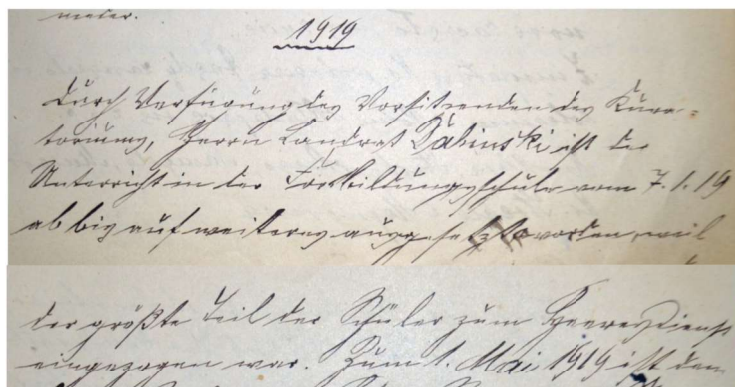 weiter.
1919
Durch Verfügung des Vorsitzenden des Kura-
toriums, Herrn Landrat Dabinski ist der
Unterricht in der Fortbildungsschule vom 7.1.19
ab bis auf weiteres ausgesetzt worden, weil
der größte Teil der Schüler zum Heeresdienst
eingezogen war. Zum 1. Mai 1919 ist dem